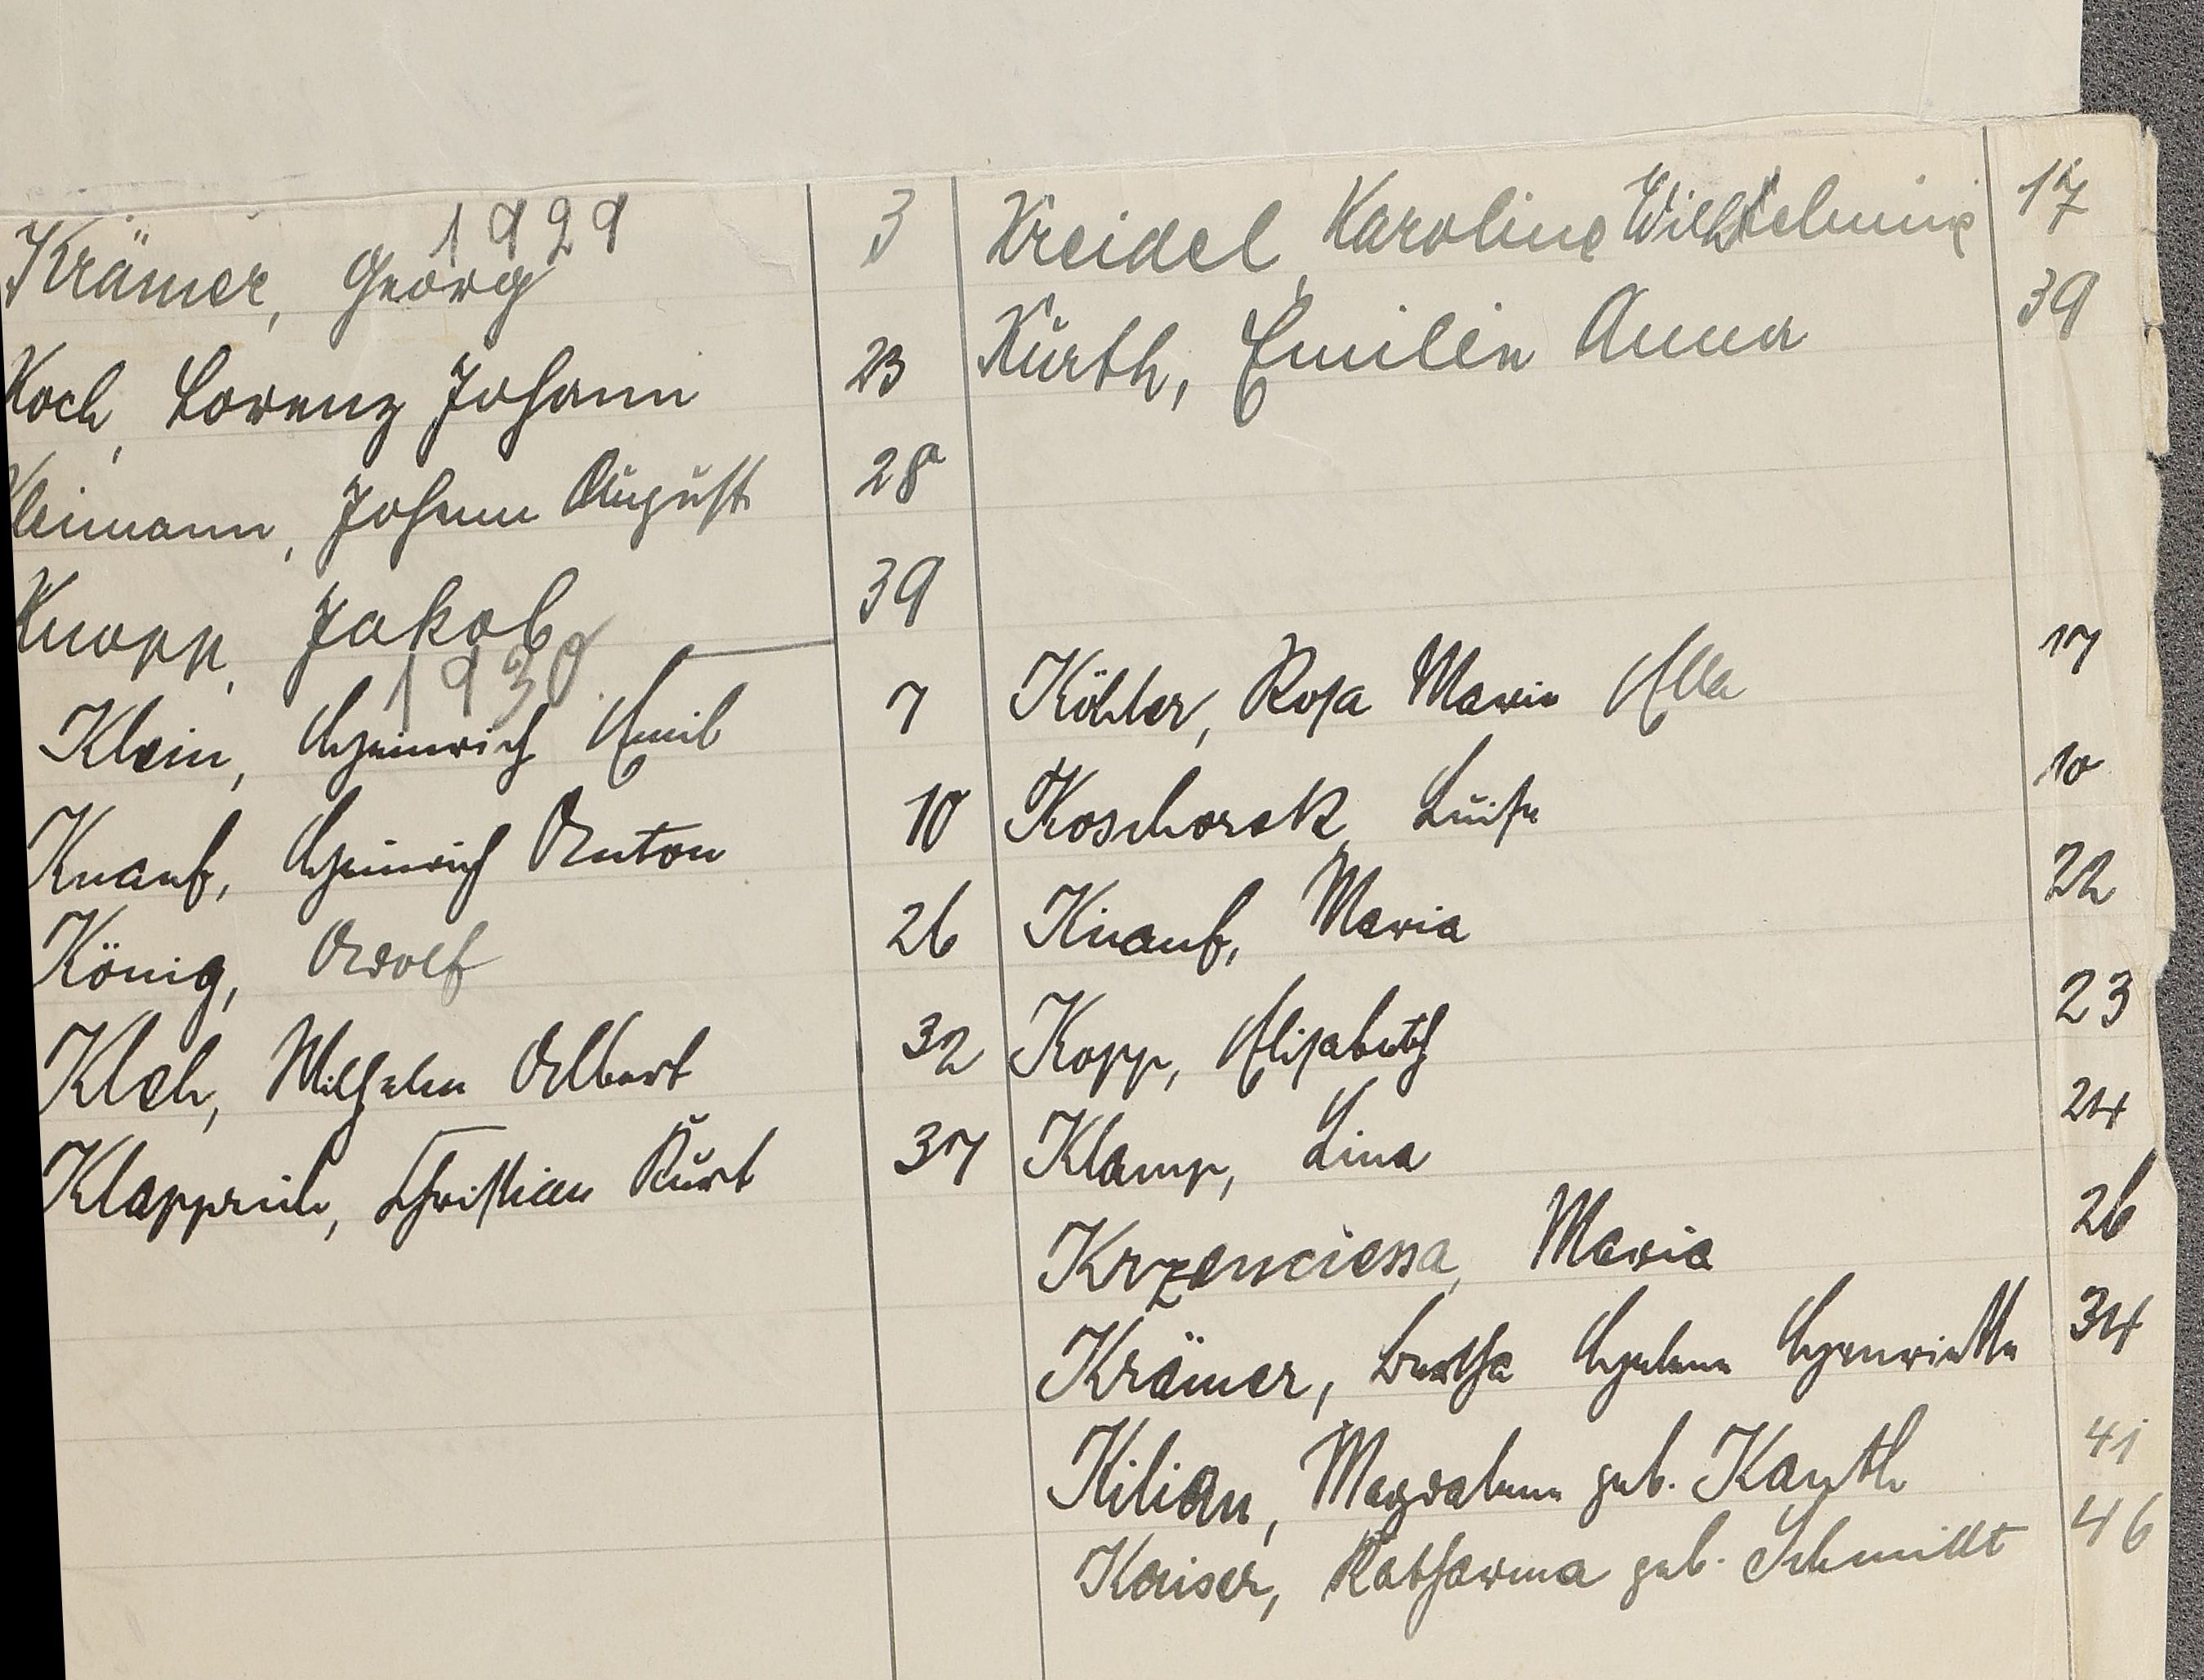 1929
Krämer, Georg 3
Koch, Lorenz Johann 23
Kleimann, Johann August 28
Knopp, Jakob 39
1930
Klein, Heinrich Emil 7
Knauf, Heinrich Anton 10
König, Adolf 26
Kleh, Wilhelm Albert 32
Klapprich, Christian Kurt 37
Kreidel, Karoline Wilhelmine 17
Kürth, Emilie Anna 39
Köhler, Rosa Maria Ella 17
Koschorek, Luise 10
Knauf, Maria 22
Kopp, Elisabeth 23
Klamp, Lina 24
Krzenciessa, Maria 26
Krämer, Bertha Helene Henriette 34
Kilian, Magdalena geb. Kauth 41
Kaiser, Katharina geb. Schmidt 46